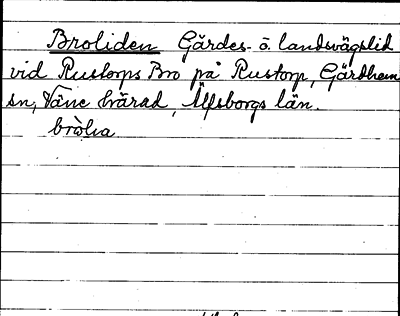 Broliden Gärdes- o. landsvägslid
vid Rustorps Bro på Rustorp, Gärdhem
sn, Väne härad, Älfsborgs län.